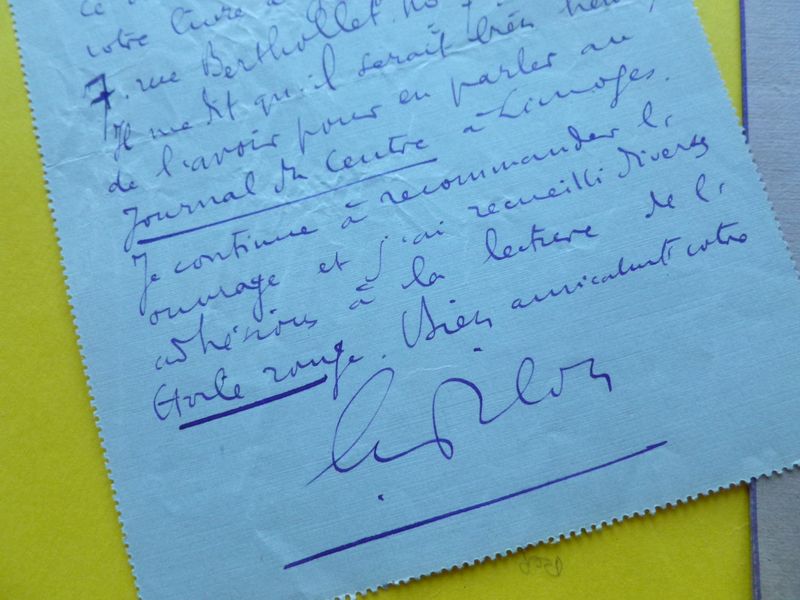 ce
votre livre à
7. rue Berthollet. No 7
Il me dit qu'il serait très heu
de l'avoir pour en parler au
Journal du Centre à Limoges.
Je continue à recommander l'
ouvrage et j'ai recueilli diverses
adhésions à la lecture de l'
Etoile rouge. Bien amicalement votre